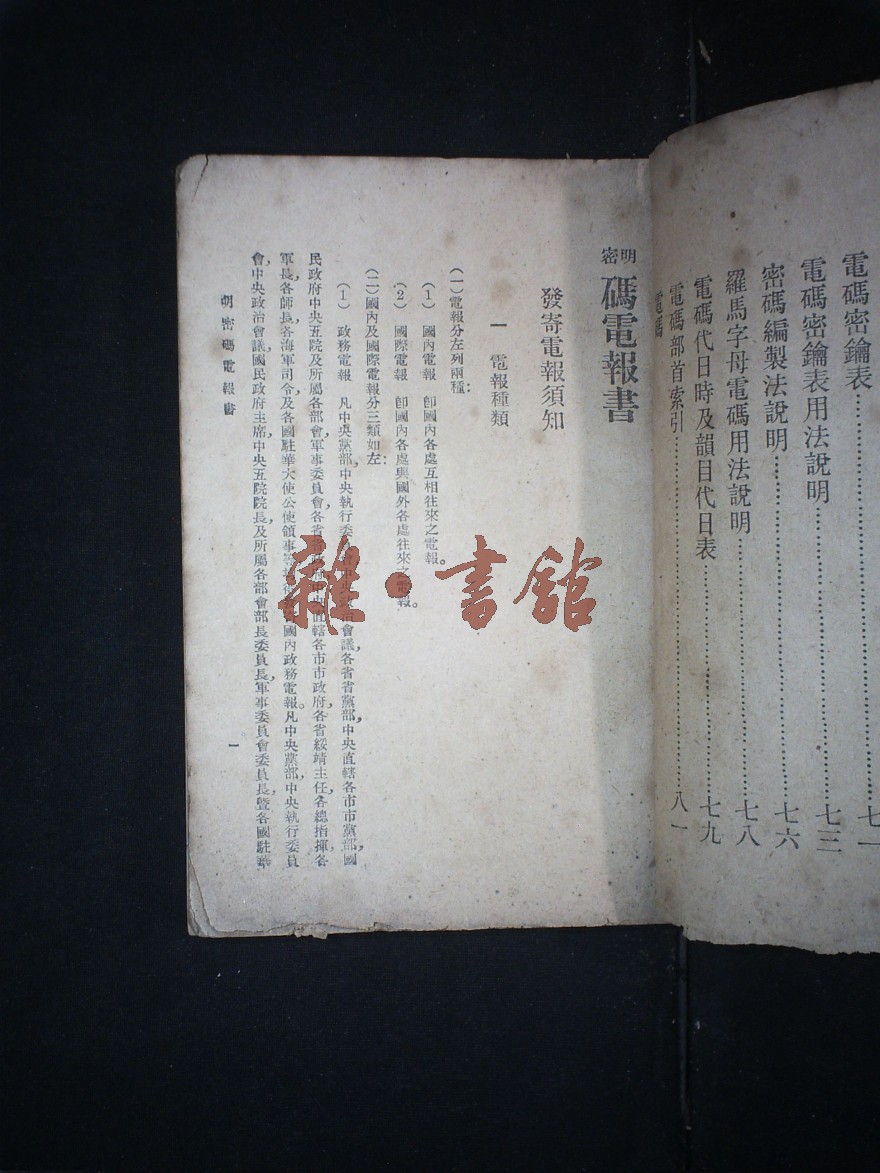 電碼密鑰表……七一
電碼密鑰表用法說明……七三
密碼編製法說明……七六
羅馬字母電碼用法說明……七八
電碼代日時及韻目代日表……七九
電碼部首索引……八一
電碼
明密碼電報書
發寄電報須知
一 電報種類
(一)電報分左列兩種:
(1) 國內電報 卽國內各處互相往來之電報。
(2) 國際電報 卽國內各處與國外各處往來之電報。
(二)國內及國際電報分三類如左:
(1) 政務電報 凡中央黨部,中央執行委 會,中央政治會議,各省省黨部,中央直轄各市市黨部,國
民政府中央五院及所屬各部會,軍事委員會,各省省政府,中央直轄各市市政府,各省綏靖主任,各總指揮各
軍長,各師長,各海軍司令,及各國駐華大使公使領事等 國內政務電報。凡中央黨部,中央執行委員
會,中央政治會議,國民政府主席,中央五院院長,及所屬各部會部長委員長,軍事委員會委員長,暨各國駐華
明密碼電報書
一
雜·書館